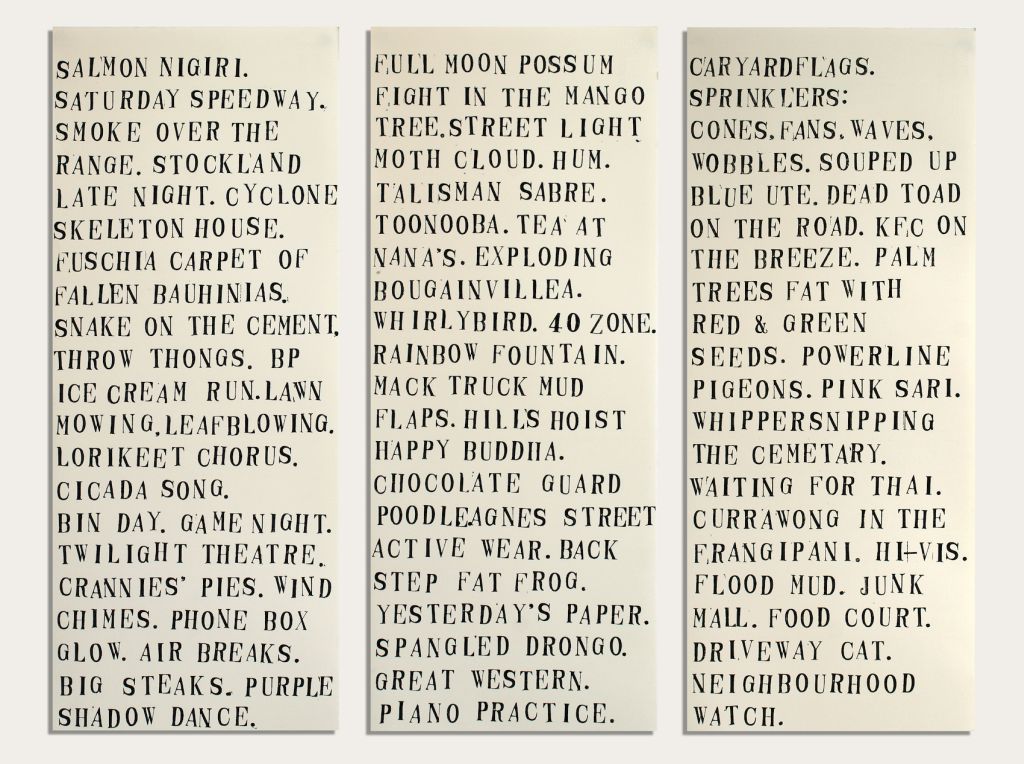 SALMON NIGIRI.
SATURDAY SPEEDWAY.
SMOKE OVER THE
RANGE. STOCKLAND
LATE NIGHT. CYCLONE
SKELETON HOUSE.
FUSCHIA CARPET OF
FALLEN BAUHINIAS.
SNAKE ON THE CEMENT.
THROW THONGS. BP
ICE CREAM RUN. LAWN
MOWING, LEAFBLOWING.
LORIKEET CHORUS.
CICADA SONG.
BIN DAY. GAME NIGHT.
TWILIGHT THEATRE.
CRANNIES' PIES. WIND
CHIMES. PHONE BOX
GLOW. AIR BREAKS.
BIG STEAKS. PURPLE
SHADOW DANCE.
FULL MOON POSSUM
FIGHT IN THE MANGO
TREE. STREET LIGHT
MOTH CLOUD. HUM.
TALISMAN SABRE.
TOONOOBA. TEA AT
NANA'S. EXPLODING
BOUGAINVILLEA.
WHIRLYBIRD. 40 ZONE.
RAINBOW FOUNTAIN.
MACK TRUCK MUD
FLAPS. HILLS HOIST
HAPPY BUDDHA.
CHOCOLATE GUARD
POODLE. AGNES STREET
ACTIVE WEAR. BACK
STEP FAT FROG.
YESTERDAY'S PAPER.
SPANGLED DRONGO.
GREAT WESTERN.
PIANO PRACTICE.
CARYARDFLAGS.
SPRINKLERS:
CONES. FANS. WAVES.
WOBBLES. SOUPED UP
BLUE UTE. DEAD TOAD
ON THE ROAD. KFC ON
THE BREEZE. PALM
TREES FAT WITH
RED & GREEN
SEEDS. POWERLINE
PIGEONS. PINK SARI.
WHIPPERSNIPPING
THE CEMETARY.
WAITING FOR THAI.
CURRAWONG IN THE
FRANGIPANI. HI-VIS.
FLOOD MUD. JUNK
MALL. FOOD COURT.
DRIVEWAY CAT.
NEIGHBOURHOOD
WATCH.